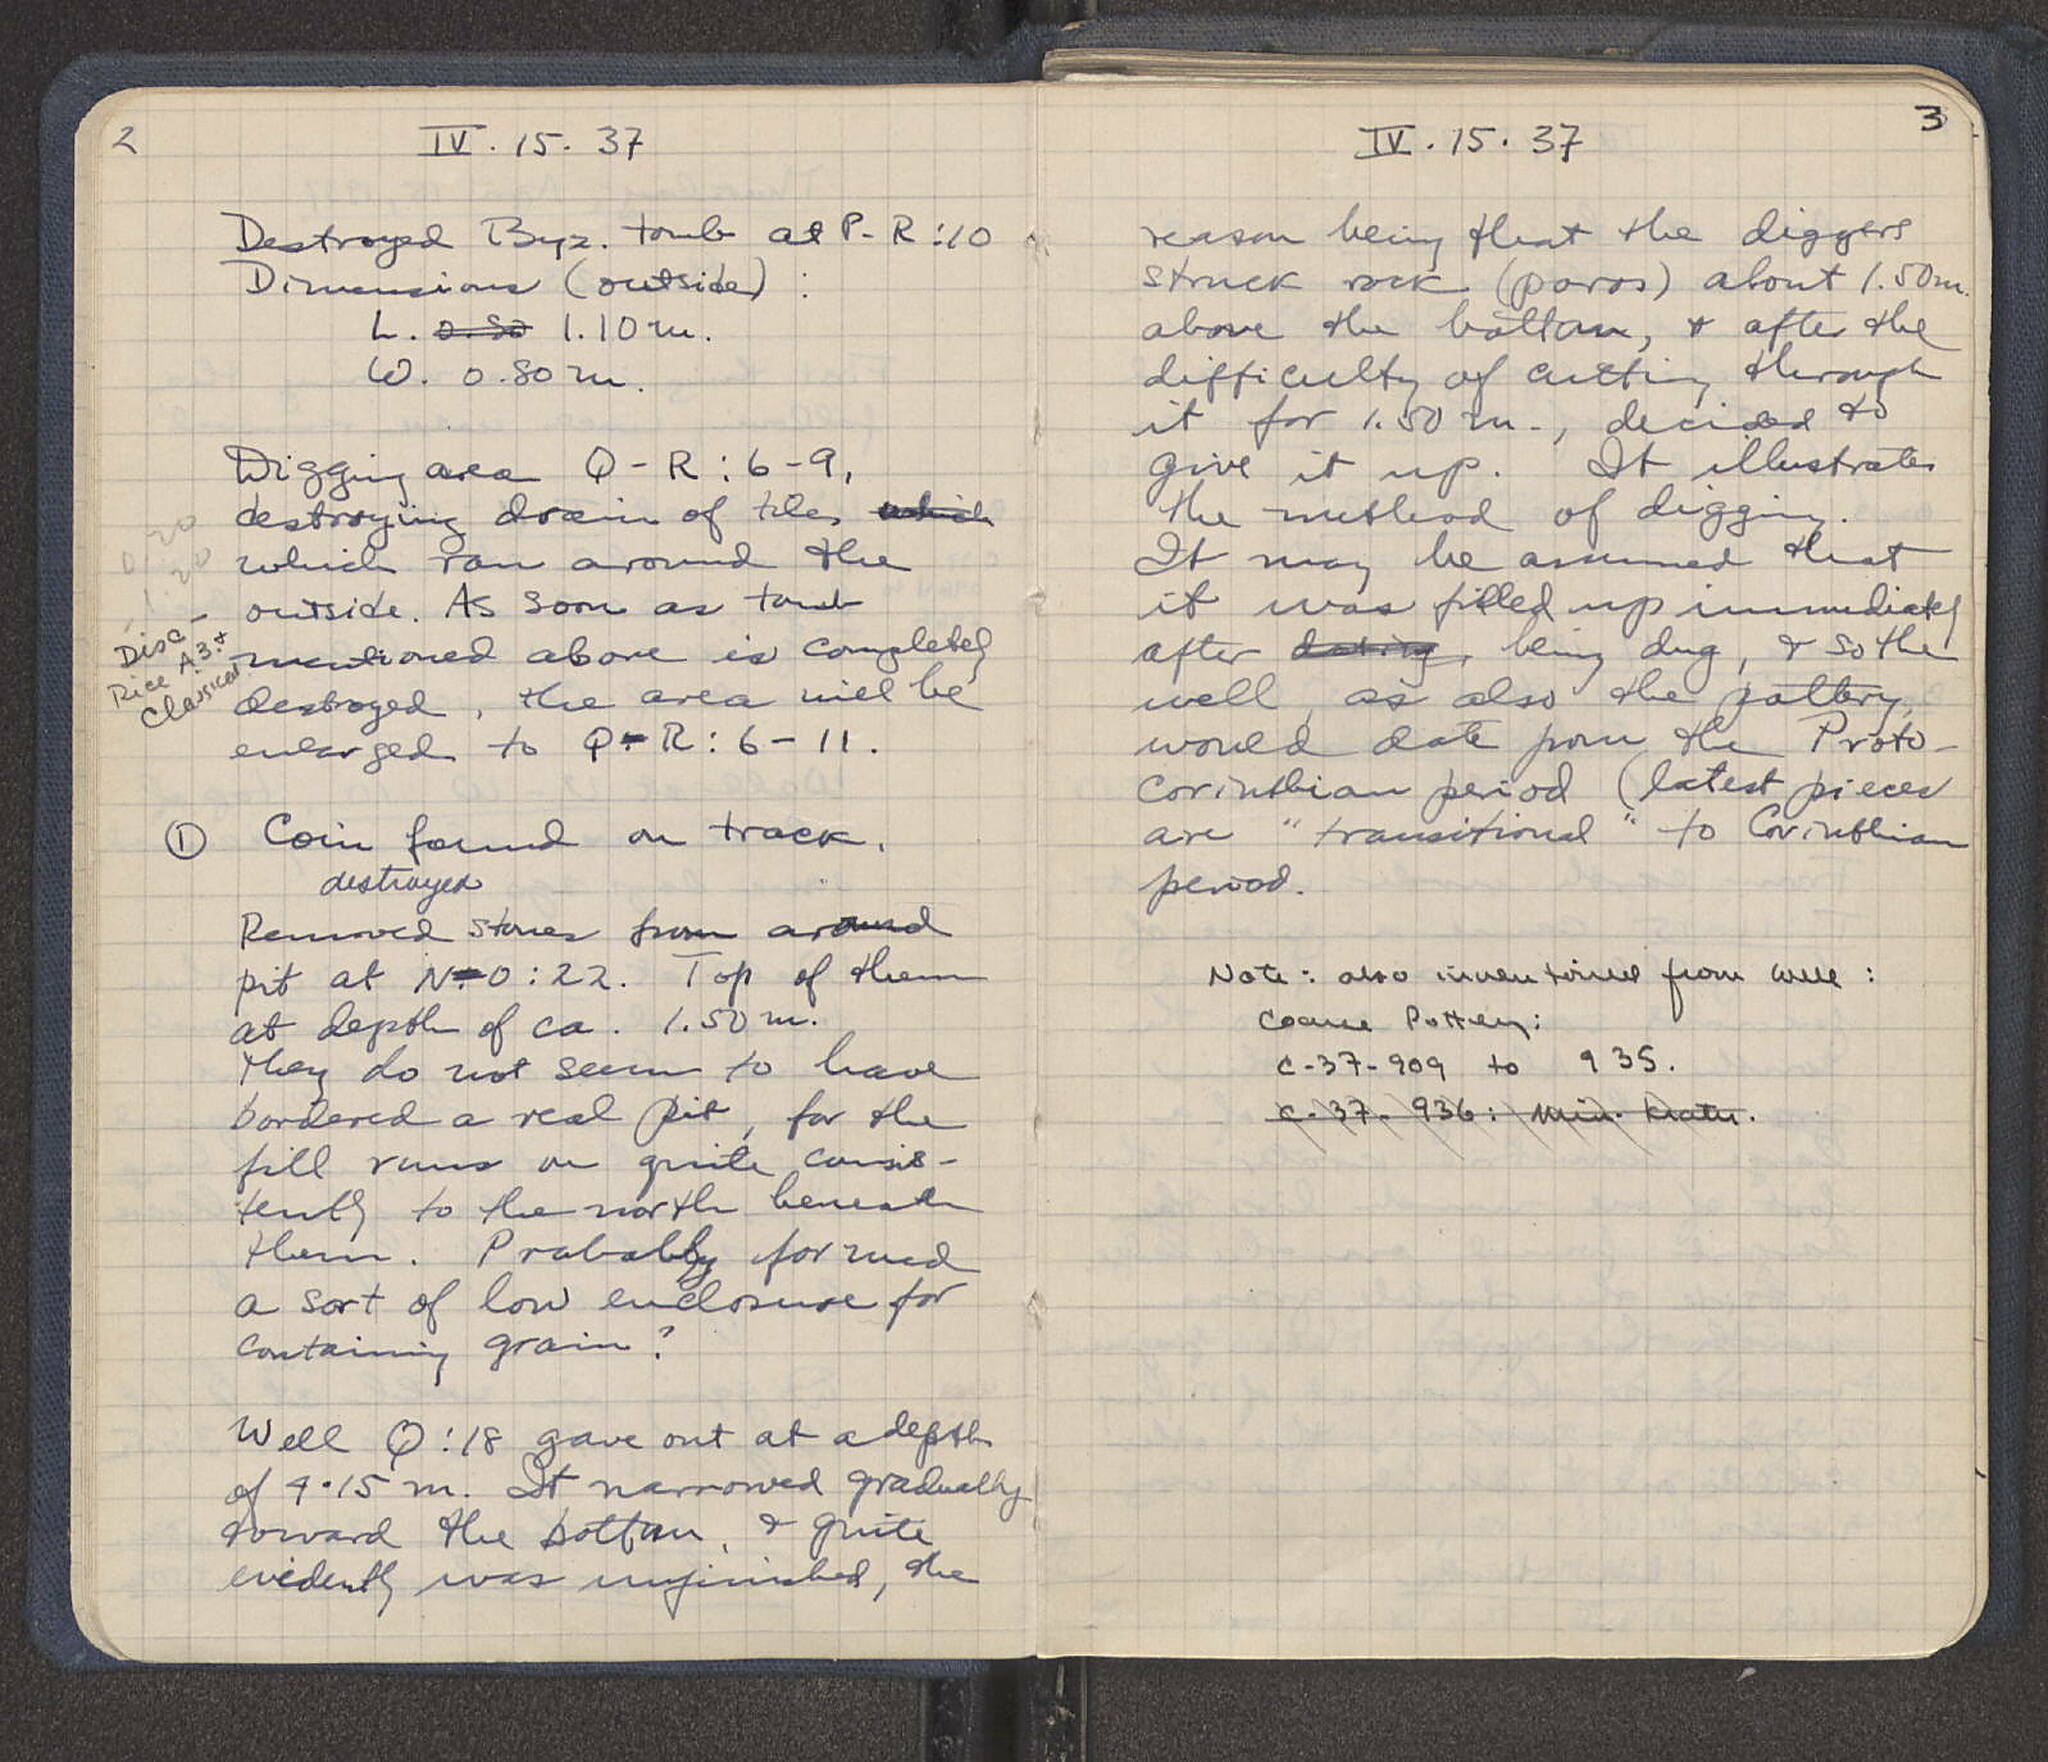 2
IV. 15. 37
Destroyed Byz. tomb at P-R:10
Dimensions (outside) :
L. 0.80 1.10 m.
W. 0.80 m.
Digging area Q-R:6-9,
destroying drain of tiles which
which ran around the
outside. As soon as tomb
mentioned above is completely
destroyed, the area will be
enlarged to Q-R:6-11.
0.20
1.20
Disc -
Rice A.3. +
Classical
① Coin found on track.
destroyed
Removed stones from around
pit at N-O:22. Top of them
at depth of ca. 1.50 m.
They do not seem to have
bordered a real pit, for the
fill runs on quite consis-
tently to the north beneath
them. Probably formed
a sort of low enclosure for
containing grain?
Well Q:18 gave out at a depth
of 4.15 m. It narrowed gradually
toward the bottom, & quite
evidently was unfinished, the
3
IV. 15. 37
reason being that the diggers
struck rock (poros) about 1.50 m.
above the bottom, & after the
difficulty of cutting through
it for 1.50 m., decided to
give it up. It illustrates
the method of digging.
It may be assumed that
it was filled up immediately
after being dug, & so the
well, as also the pottery,
would date from the Proto-
Corinthian period (latest pieces
are "transitional" to Corinthian
period.
Note: also inventoried from well:
Coarse Pottery:
C-37-909 to 935.
C-37-936: Min. krater.